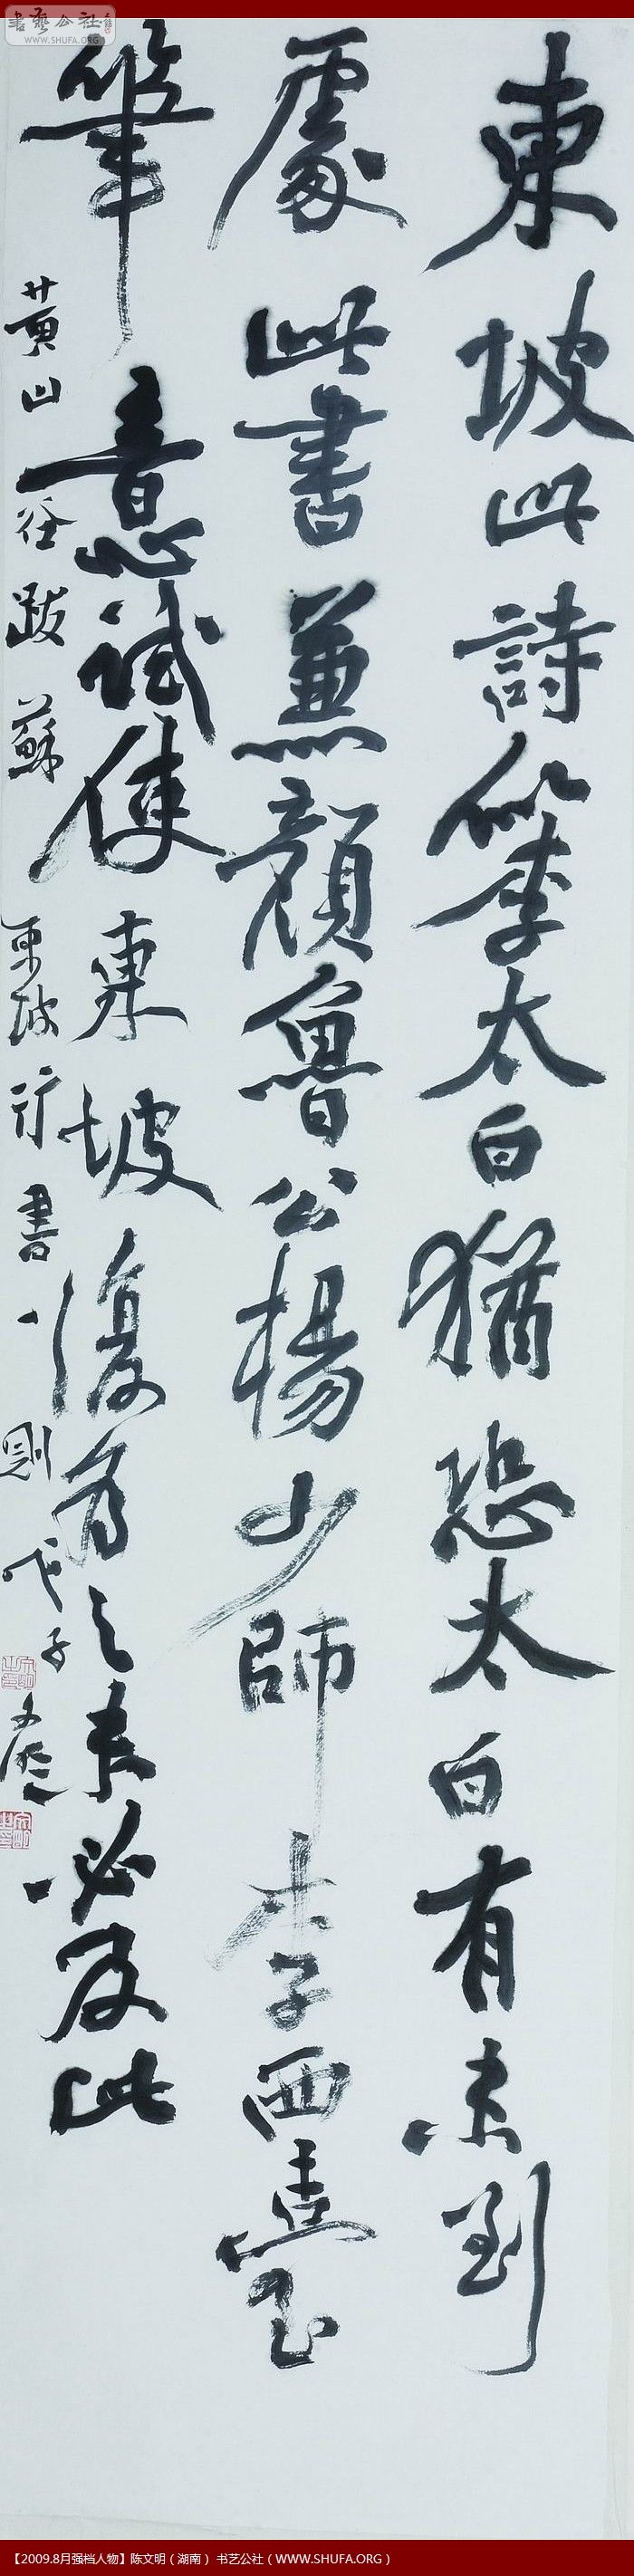 書藝公社
WWW.SHUFA.ORG
東坡此詩似李太白猶恐太白有未到
處此書兼顏魯公楊少師李西臺
筆意試使東坡復為之未必及此
黃山谷跋蘇東坡行書一則戊子文明
【2009.8月强档人物】陈文明（湖南） 书艺公社（WWW.SHUFA.ORG）